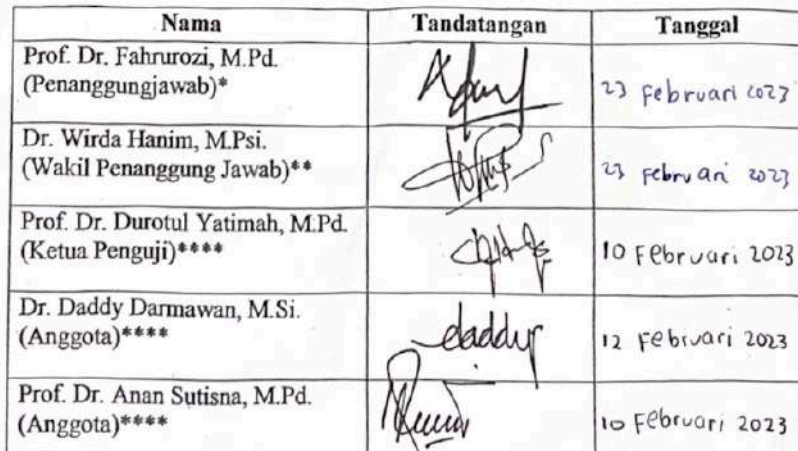 Nama Tandatangan Tanggal
Prof. Dr. Fahrurozi, M.Pd.
(Penanggungjawab)* 23 Februari 2023
Dr. Wirda Hanim, M.Psi.
(Wakil Penanggung Jawab)** 23 Februari 2023
Prof. Dr. Durotul Yatimah, M.Pd.
(Ketua Penguji)**** 10 Februari 2023
Dr. Daddy Darmawan, M.Si.
(Anggota)**** daddy 12 Februari 2023
Prof. Dr. Anan Sutisna, M.Pd.
(Anggota)**** 10 Februari 2023